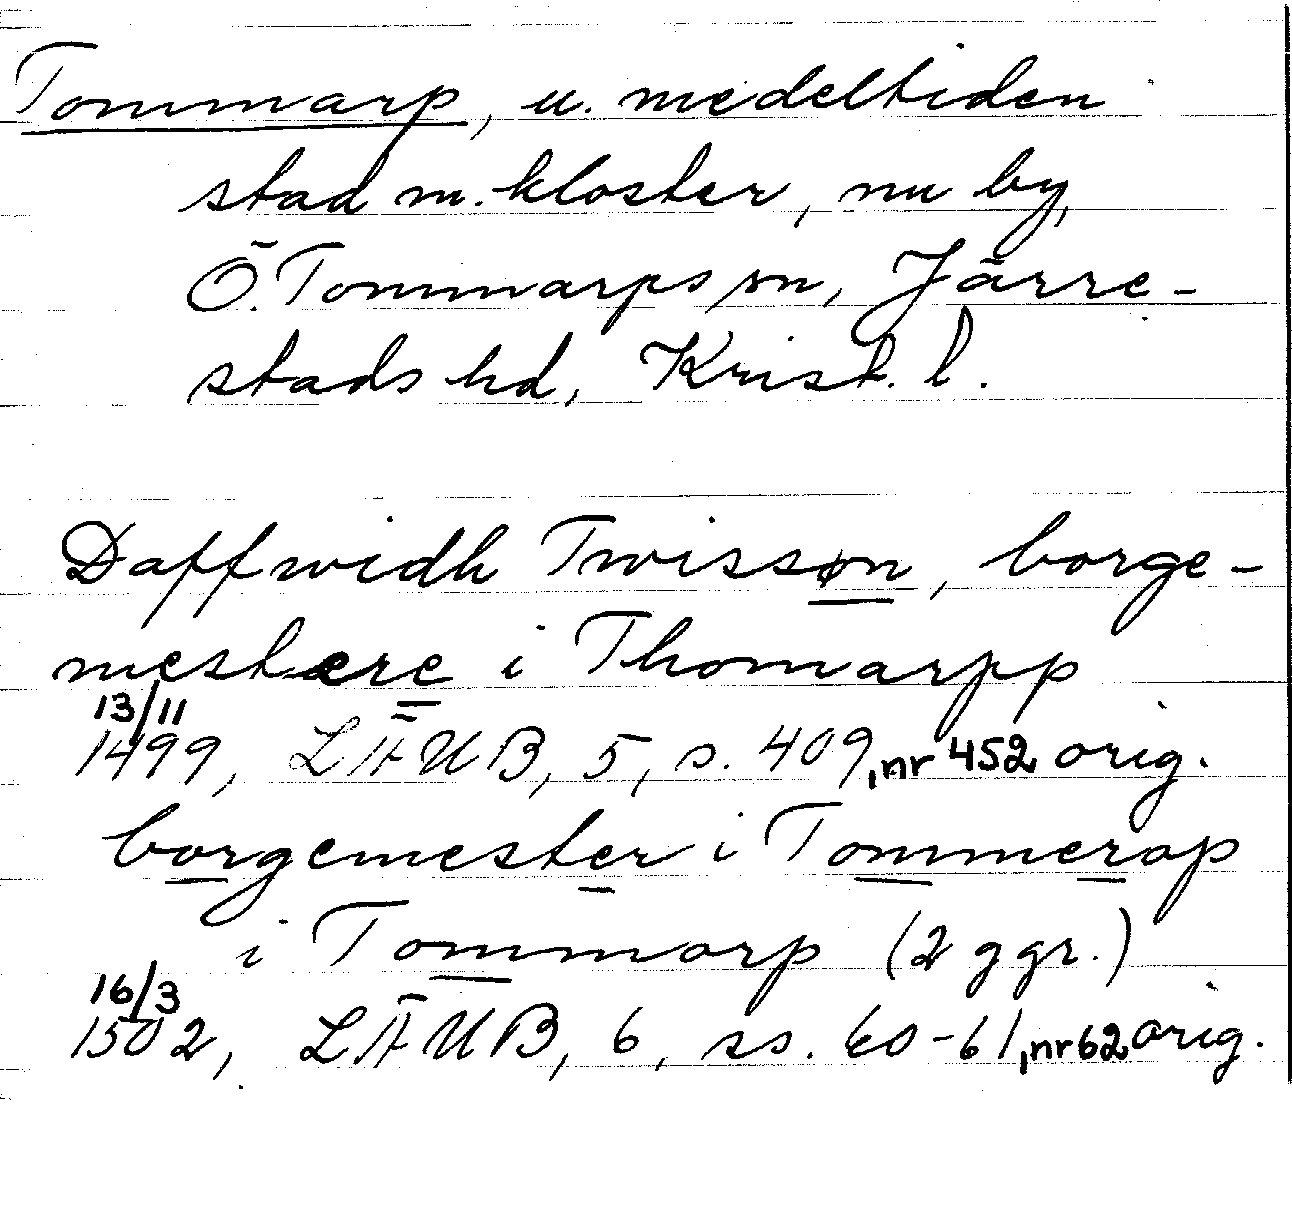 Tommarp, u. medeltiden
stad m. kloster, nu by,
Ö. Tommarps sn, Järre-
stads hd, Krist. l.
Daffwidh Twissøn, borge-
mestere i Thomarpp
13/11
1499, LÄUB, 5, s. 409, nr 452 orig.
borgemester i Tommerop
i Tommorp (2 ggr.)
16/3
1502, LÄUB, 6, ss. 60-61, nr 62 orig.